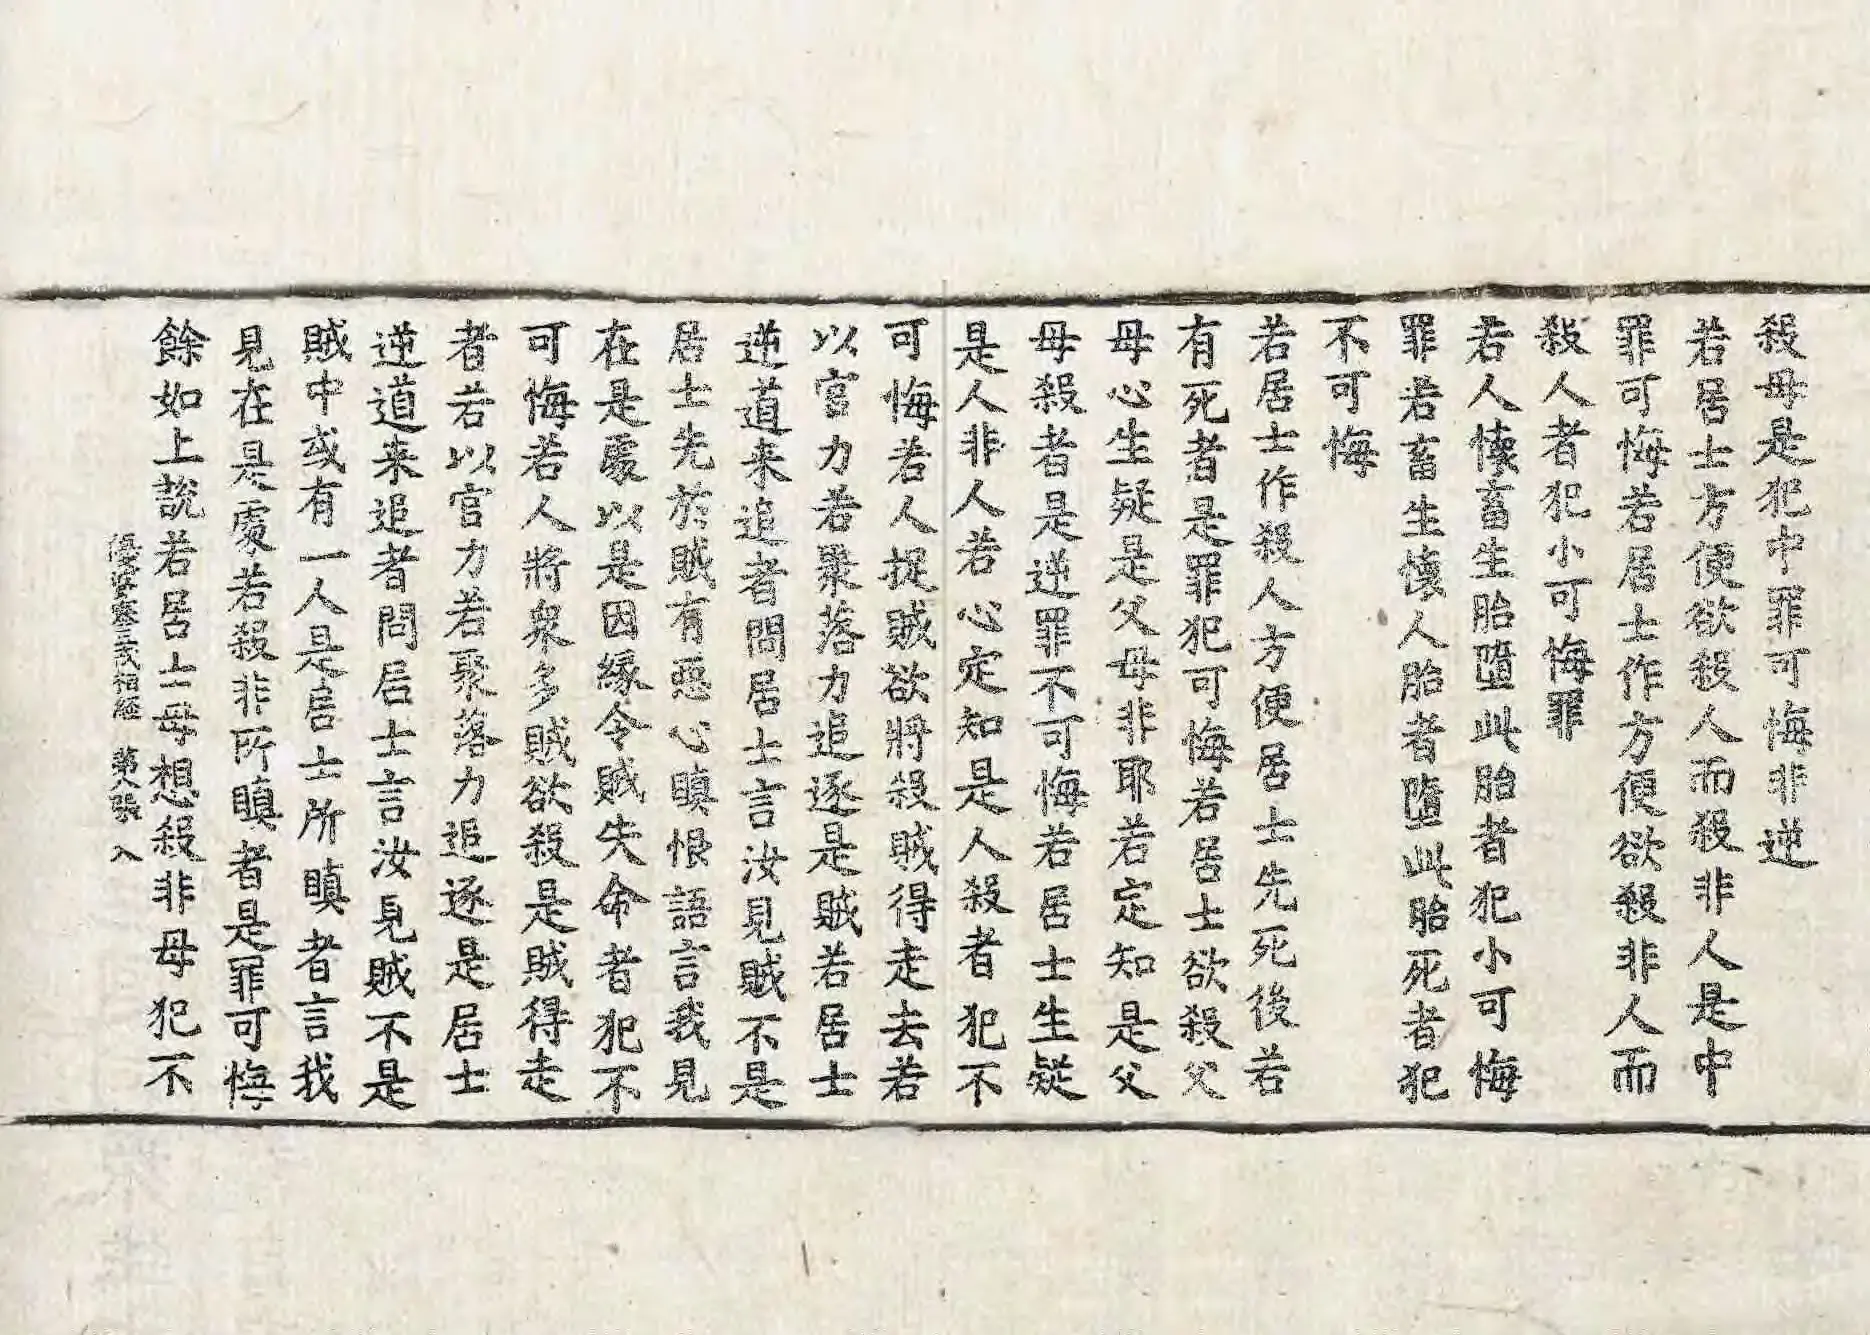 殺母是犯中罪可悔非逆
若居士方便欲殺人而殺非人是中
罪可悔若居士作方便欲殺非人而
殺人者犯小可悔罪
若人懷畜生胎墮此胎者犯小可悔
罪若畜生懷人胎者墮此胎死者犯
不可悔
若居士作殺人方便居士先死後若
有死者是罪犯可悔若居士欲殺父
母心生疑是父母非耶若定知是父
母殺者是逆罪不可悔若居士生疑
是人非人若心定知是人殺者犯不
可悔若人捉賊欲將殺賊得走去若
以官力若聚落力追逐是賊若居士
逆道来追者問居士言汝見賊不是
居士先於賊有惡心瞋恨語言我見
在是處以是因緣令賊失命者犯不
可悔若人將衆多賊欲殺是賊得走
者若以官力若聚落力追逐是居士
逆道来追者問居士言汝見賊不是
賊中或有一人是居士所瞋者言我
見在是處若殺非所瞋者是罪可悔
餘如上說若居士母想殺非母犯不
優婆塞五戒相經 第八張 入